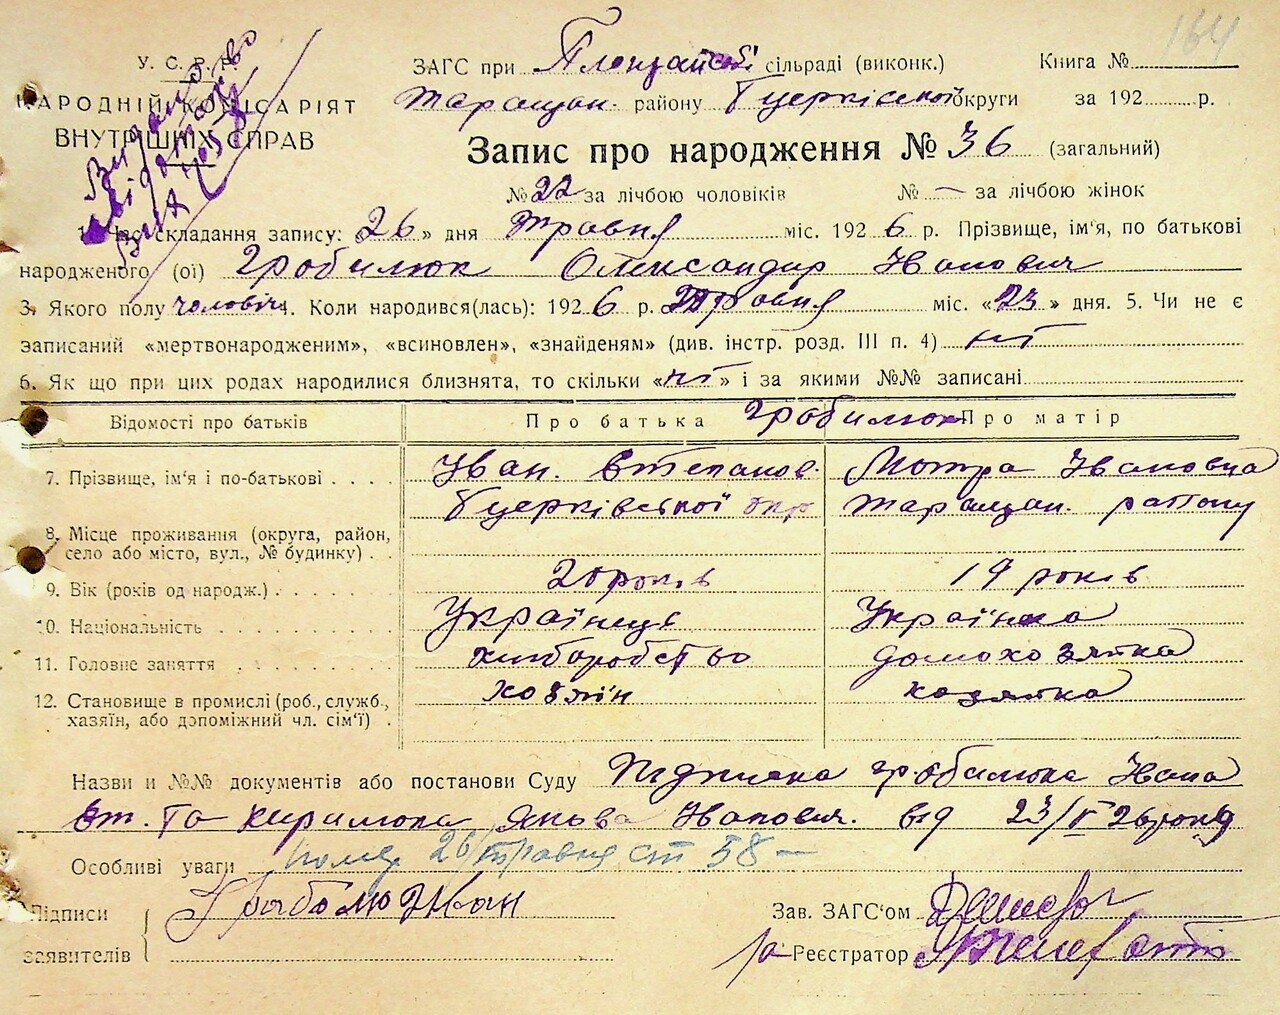 164
У. С. Р. Р.
НАРОДНІЙ КОМІСАРІЯТ
ВНУТРІШНІХ СПРАВ
ЗАГС при сільраді (виконк.) Книга №
Таращан. району Бцерківської округи за 192 р.
Запис про народження № 36 (загальний)
№ 22 за лічбою чоловіків № — за лічбою жінок
Час складання запису: 26 » дня Травня міс. 192 6 р. Прізвище, ім'я, по батькові
народженого (ої) Гробилюк Олександир Іванович
3. Якого полу чоловіч 4. Коли народився(лась): 192 6 р. Травня міс. « 23 » дня. 5. Чи не є
записаний «мертвонародженим», «всиновлен», «знайденям» (див. інстр. розд. III п. 4) ні
6. Як що при цих родах народилися близнята, то скільки « ні » і за якими №№ записані
Відомості про батьків Про батька Гробилюк Про матір
7. Прізвище, ім'я і по-батькові Іван. Степанов. Мотра Івановна
Бцерківської окр Таращан. району
8. Місце проживання (округа, район,
село або місто, вул., № будинку)
9. Вік (років од народж.) 20 років 19 років
10. Національність Українець Українка
11. Головне заняття хліборобство домохозяйка
12. Становище в промислі (роб., служб., хозяїн хозяйка
хазяїн, або допоміжний чл. сім'ї)
Назви и №№ документів або постанови Суду Підписка Гробилюка Івана
Ст. та Якова Іванович. від 23/V 26 року
Особливі уваги помер 26/травня ст 58 —
Підписи Граболю Иван Зав. ЗАГС'ом
заявителів Реєстратор